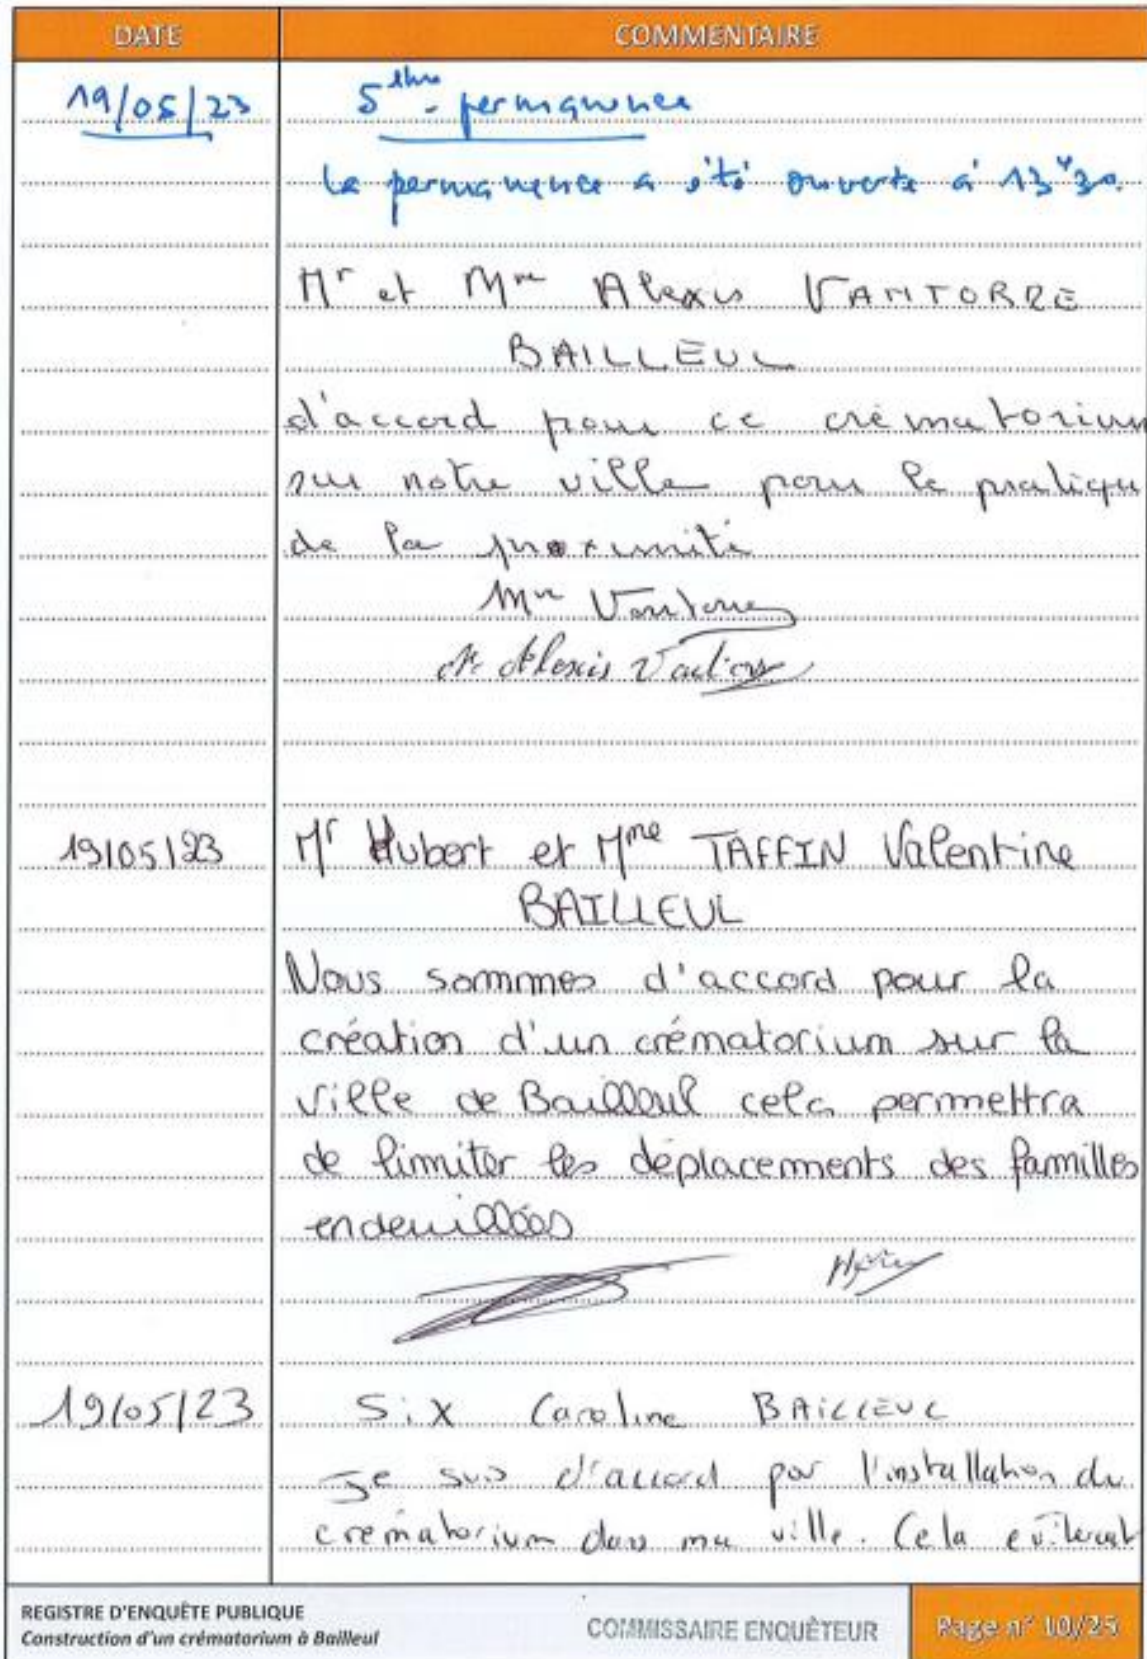 DATE COMMENTAIRE
19/05/23 5ème permanence
La permanence a été ouverte à 13h30.
Mr et Mme Alexis VANTORRE
BAILLEUL
d'accord pour ce crématorium
sur notre ville pour le pratique
de la proximité
Mme Vantorre
Mr Alexis
19/05/23 Mr Hubert et Mme TAFFIN Valentine
BAILLEUL
Nous sommes d'accord pour la
création d'un crématorium sur la
ville de Bailleul cela permettra
de limiter les déplacements des familles
endeuillées
19/05/23 Six Caroline BAILLEUL
Je suis d'accord par l'installation du
crematorium dans ma ville. Cela eviterait
REGISTRE D'ENQUÊTE PUBLIQUE
Construction d'un crématorium à Bailleul
COMMISSAIRE ENQUÊTEUR
Page n° 10/25